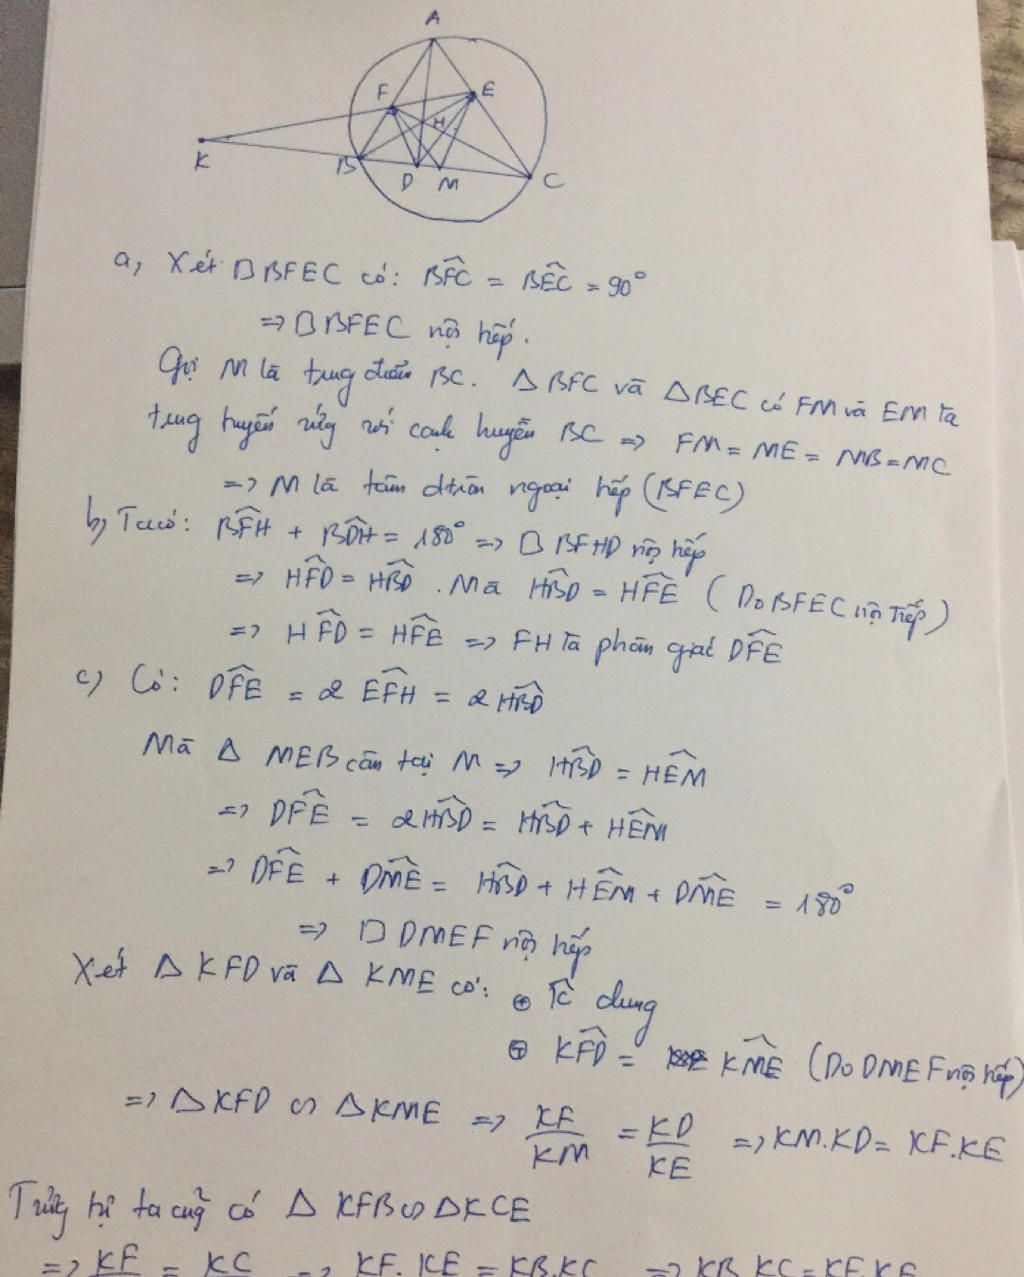 A
F
E
H
K
B
D
M
C
a, Xét □ BFEC có: \widehat{BFC} = \widehat{BEC} = 90°
=> □ BFEC nội tiếp.
Gọi M là trung điểm BC. Δ BFC và Δ BEC có FM và EM là
trung tuyến ứng với cạnh huyền BC => FM = ME = MB = MC
=> M là tâm đtròn ngoại tiếp (BFEC)
b, Ta có: \widehat{BFH} + \widehat{BDH} = 180° => □ BFHD nội tiếp
=> \widehat{HFD} = \widehat{HBD} . Mà \widehat{HBD} = \widehat{HFE} ( Do BFEC nội tiếp )
=> \widehat{HFD} = \widehat{HFE} => FH là phân giác \widehat{DFE}
c) Có: \widehat{DFE} = 2 \widehat{EFH} = 2 \widehat{HBD}
Mà Δ MEB cân tại M => \widehat{HBD} = \widehat{HEM}
=> \widehat{DFE} = 2\widehat{HBD} = \widehat{HBD} + \widehat{HEM}
=> \widehat{DFE} + \widehat{DME} = \widehat{HBD} + \widehat{HEM} + \widehat{DME} = 180°
=> □ DMEF nội tiếp
Xét Δ KFD và Δ KME có: ⊕ \widehat{K} chung
⊕ \widehat{KFD} = \widehat{KME} (Do DMEF nội tiếp)
=> Δ KFD ∽ Δ KME => \frac{KF}{KM} = \frac{KD}{KE} => KM.KD = KF.KE
Tương tự ta cũng có Δ KFB ∽ Δ KCE
=> KF = KC => KF. KE = KB.KC => KB.KC = KF.KE